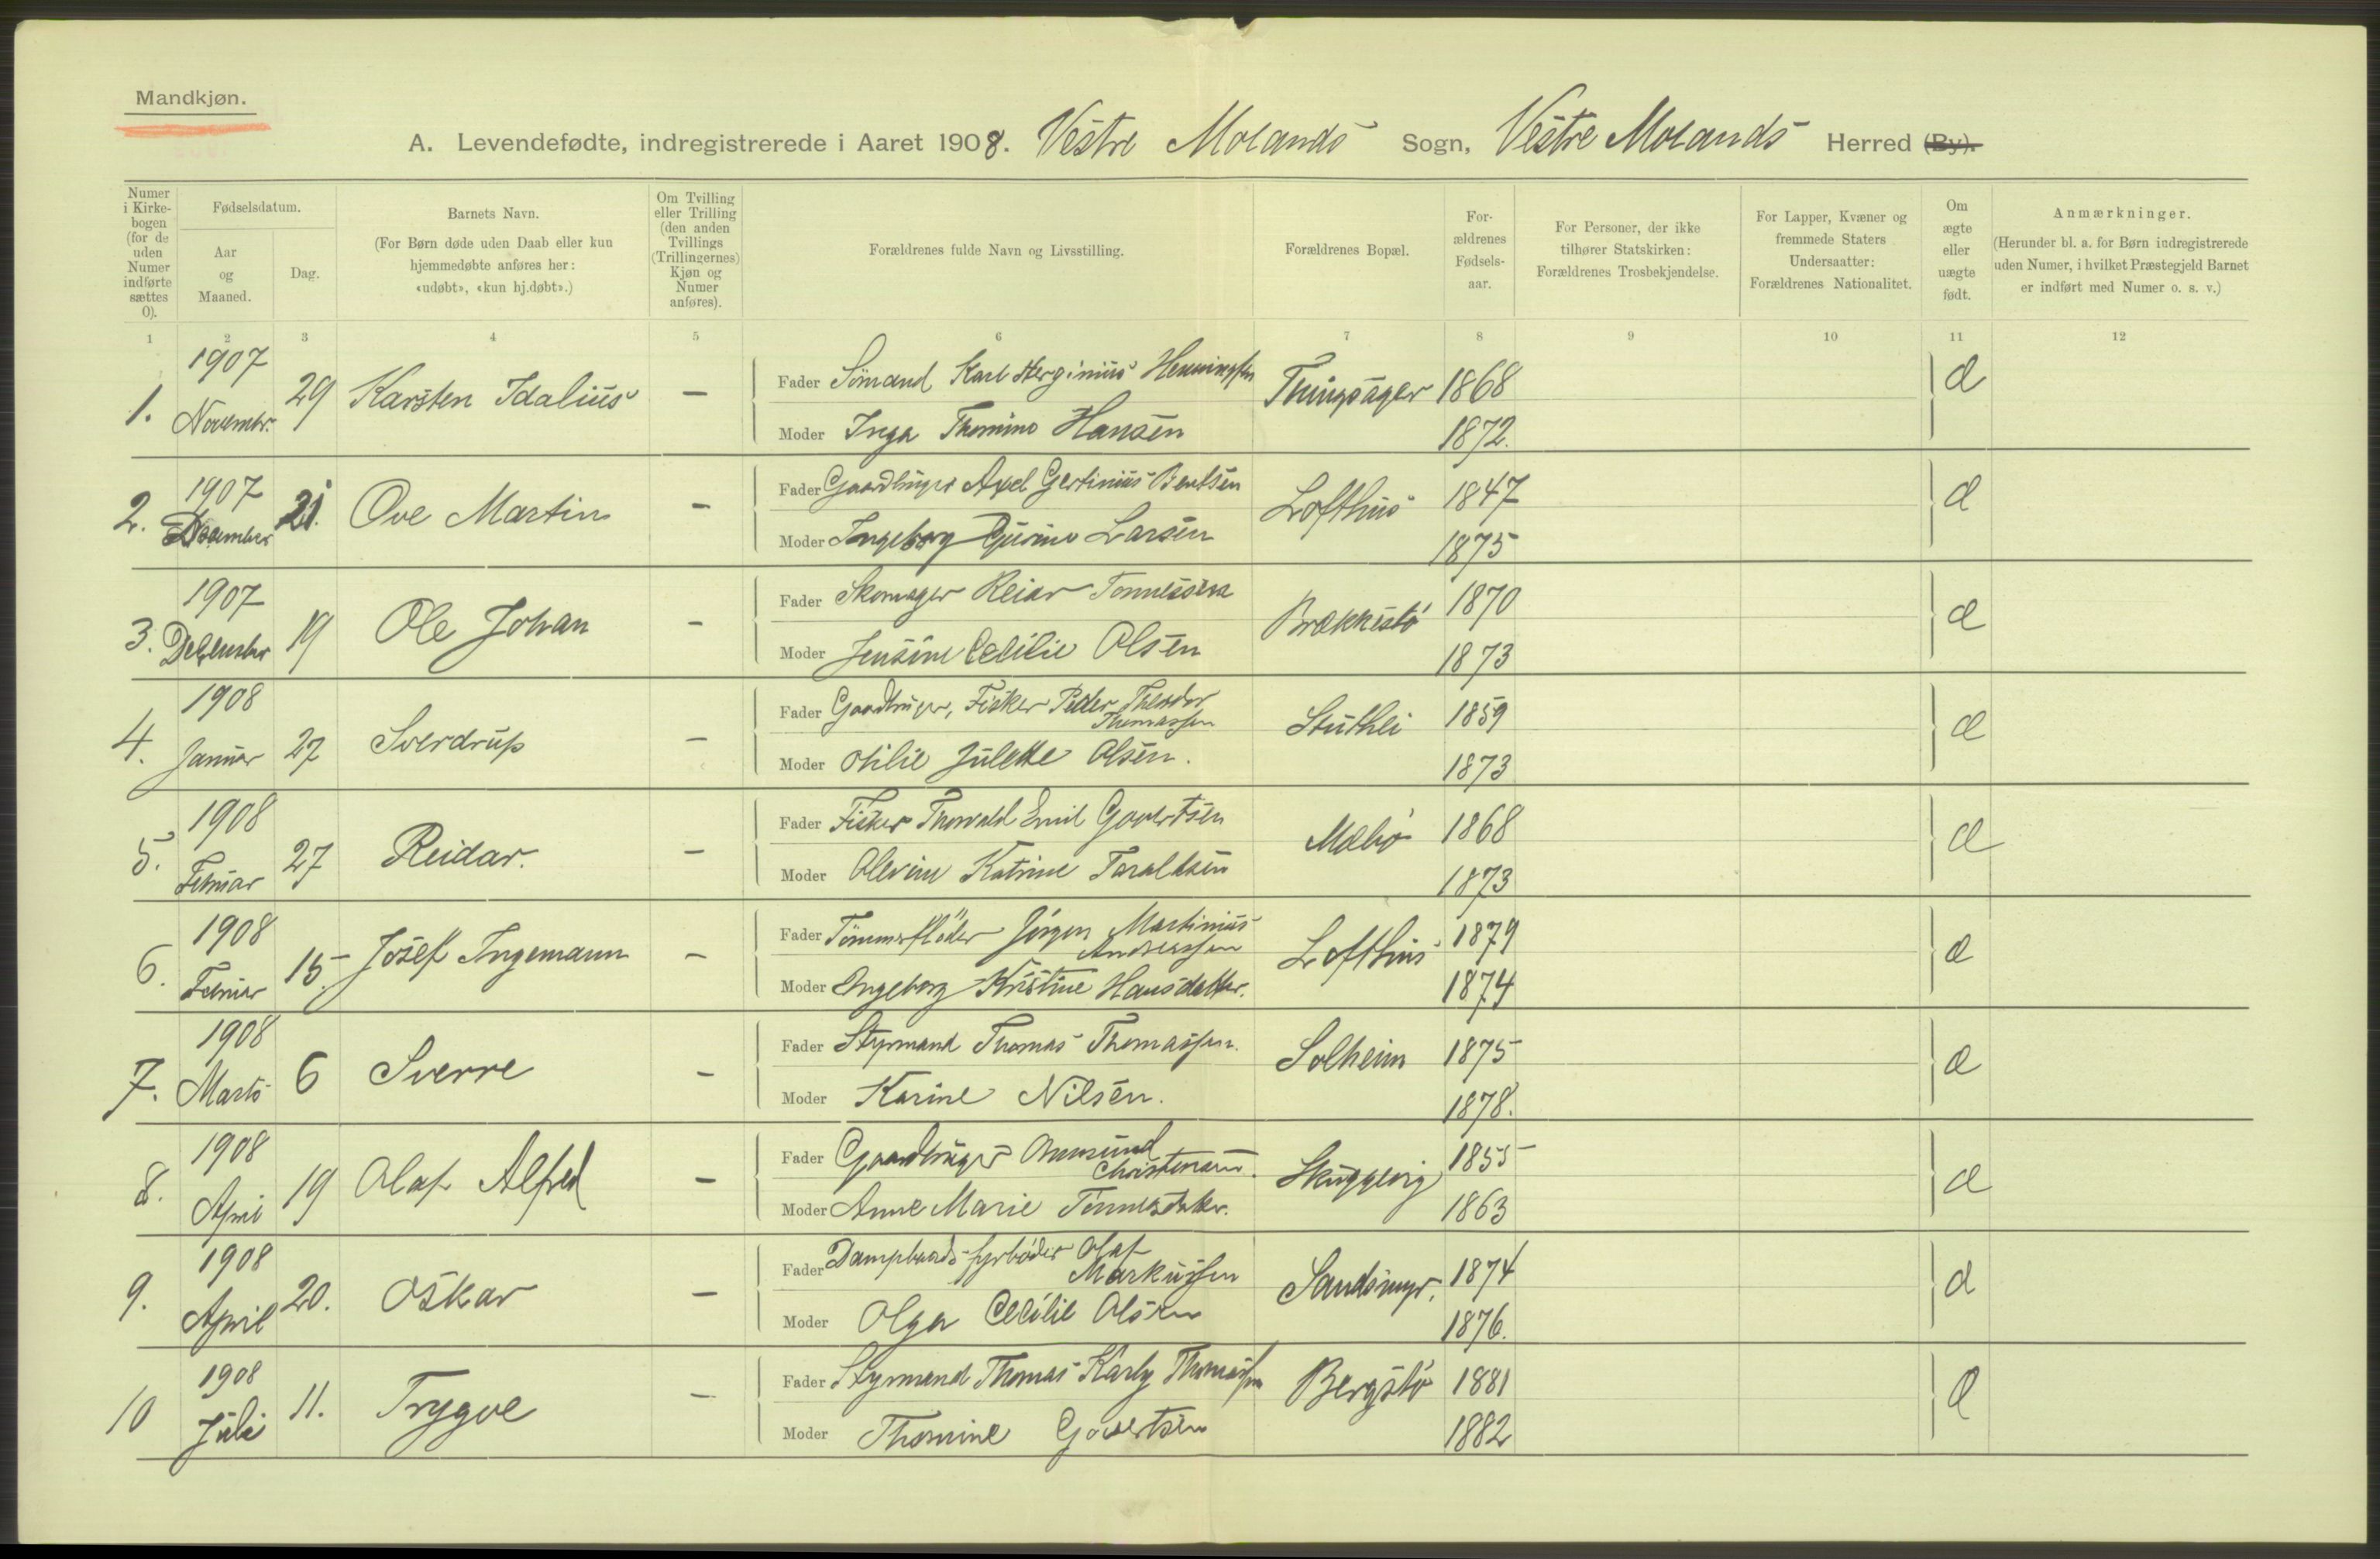 Mandkjøn.
A. Levendefødte, indregistrerede i Aaret 1908. Vestre Molands Sogn, Vestre Molands Herred (By).
Numer i Kirkebogen (for de uden Numer indførte sættes 0).
Fødselsdatum.
Aar og Maaned.
Dag.
Barnets Navn.
(For Børn døde uden Daab eller kun hjemmedøbte anføres her: «udøbt», «kun hj.døbt».)
Om Tvilling eller Trilling (den anden Tvillings (Trillingernes) Kjøn og Numer anføres).
Forældrenes fulde Navn og Livsstilling.
Forældrenes Bopæl.
Forældrenes Fødselsaar.
For Personer, der ikke tilhører Statskirken: Forældrenes Trosbekjendelse.
For Lapper, Kvæner og fremmede Staters Undersaatter: Forældrenes Nationalitet.
Om ægte eller uægte født.
Anmærkninger.
(Herunder bl. a. for Børn indregistrerede uden Numer, i hvilket Præstegjeld Barnet er indført med Numer o. s. v.)
1 2 3 4 5 6 7 8 9 10 11 12
1. 1907 Novembr. 29 Karsten Idalius – Fader Sømand Karl Henningsen 1868 æ
Moder Inga Thomine Hansen 1872.
2. 1907 December 21. Ove Martin – Fader Gaardbruger Axel Gertinius Bentsen Lofthus 1847 æ
Moder Ingeborg Larsen 1875
3. 1907 December 19 Ole Johan – Fader Skomager Reiar Tønnessen Brækkestø 1870 æ
Moder Jensine Cecilie Olsen 1873
4. 1908 Januar 27 Sverdrup – Fader Gaardbruger, Fisker Peder Theodor Thomassen Stuthei 1859 æ
Moder Otilie Julette Olsen. 1873
5. 1908 Februar 27 Reidar. – Fader Fisker Thorvald Emil Govertsen Mæbø 1868 æ
Moder Olevine Katrine Taraldsen 1873
6. 1908 Februar 15 Josef Ingemann – Fader Tømmerfløder Jørgen Martinius Andreassen Lofthus 1879 æ
Moder Ingeborg Kristine Hansdatter. 1874
7. 1908 Marts 6 Sverre – Fader Styrmand Thomas Thomassen. Solheim 1875 æ
Moder Karine Nilsen. 1878.
8. 1908 April 19 Olaf Alfred – Fader Gaardbruger Ommund Christensen. Skuggevig 1855 æ
Moder Anne Marie Tønnesdatter. 1863
9. 1908 April 20. Oskar – Fader Dampbaads-fyrbøder Olaf Markussen Sandsmyr. 1874 æ
Moder Olga Cecilie Olsen 1876.
10 1908 Juli 11. Trygve – Fader Styrmand Thomas Karly Thomassen Bergstø 1881 æ
Moder Thomine Govertsen 1882